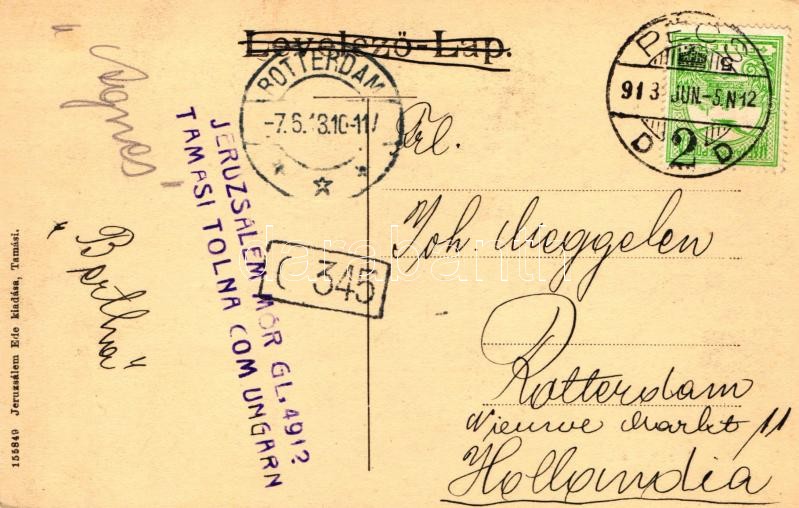 Levelező-Lap.
PÉCS
913 JUN.-5.N12
D 2 D
ROTTERDAM
-7.6.13.10-11V
"Agnes"
"Bertha"
JERUZSALEM MÓR GL.4912
TAMASI TOLNA COM UNGARN
C 345
Frl.
Joh. Meggelen
Rotterdam
Nieuwe Markt 11
Hollandia
155849 Jeruzsálem Ede kiadása, Tamási.
darabanth